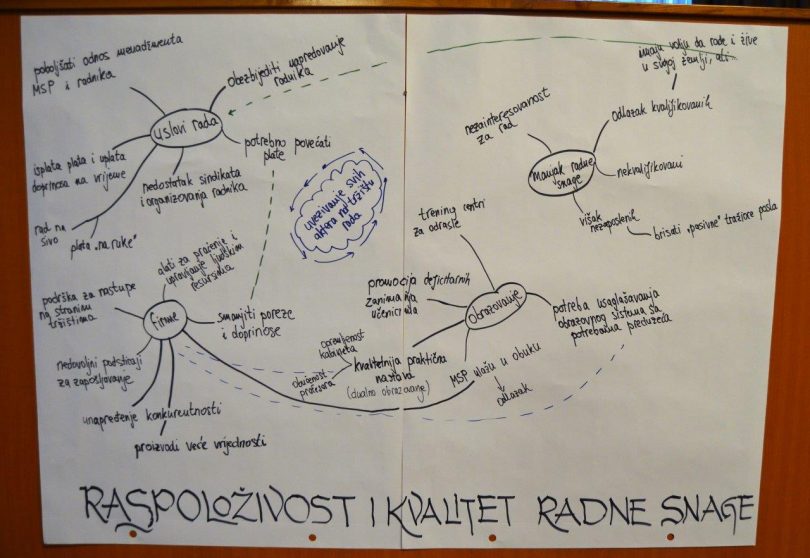 poboljšati odnos menadžmenta
MSP i radnika
obezbijediti napredovanje
radnika
uslovi rada
potrebno povećati
plate
isplata plata i uplata
doprinosa na vrijeme
nedostatak sindikata
i organizovanja radnika
rad na
sivo
plata „na ruke"
uvezivanje svih
aktera na tržištu
rada
alati za praćenje i
upravljanje ljudskim
resursima
podrška za nastupe
na stranim
tržištima
firme
smanjiti poreze
i doprinose
nedovoljni podsticaji
za zapošljavanje
unapređenje konkurentnosti
proizvodi veće vrijednosti
imaju volju da rade i žive
u svojoj zemlji, ali
nezainteresovanost
za rad
odlazak kvalifikovanih
manjak radne
snage
nekvalifikovani
višak
nezaposlenih
brisati „pasivne" tražioce posla
trening centri
za odrasle
promocija deficitarnih
zanimanja
učenicima
obrazovanje
potreba usaglašavanja
obrazovnog sistema sa
potrebama preduzeća
opremljenost
kabineta
obučenost
profesora
kvalitetnija praktična
nastava
(dualno obrazovanje)
MSP ulažu u obuku
odlazak
RASPOLOŽIVOST I KVALITET RADNE SNAGE